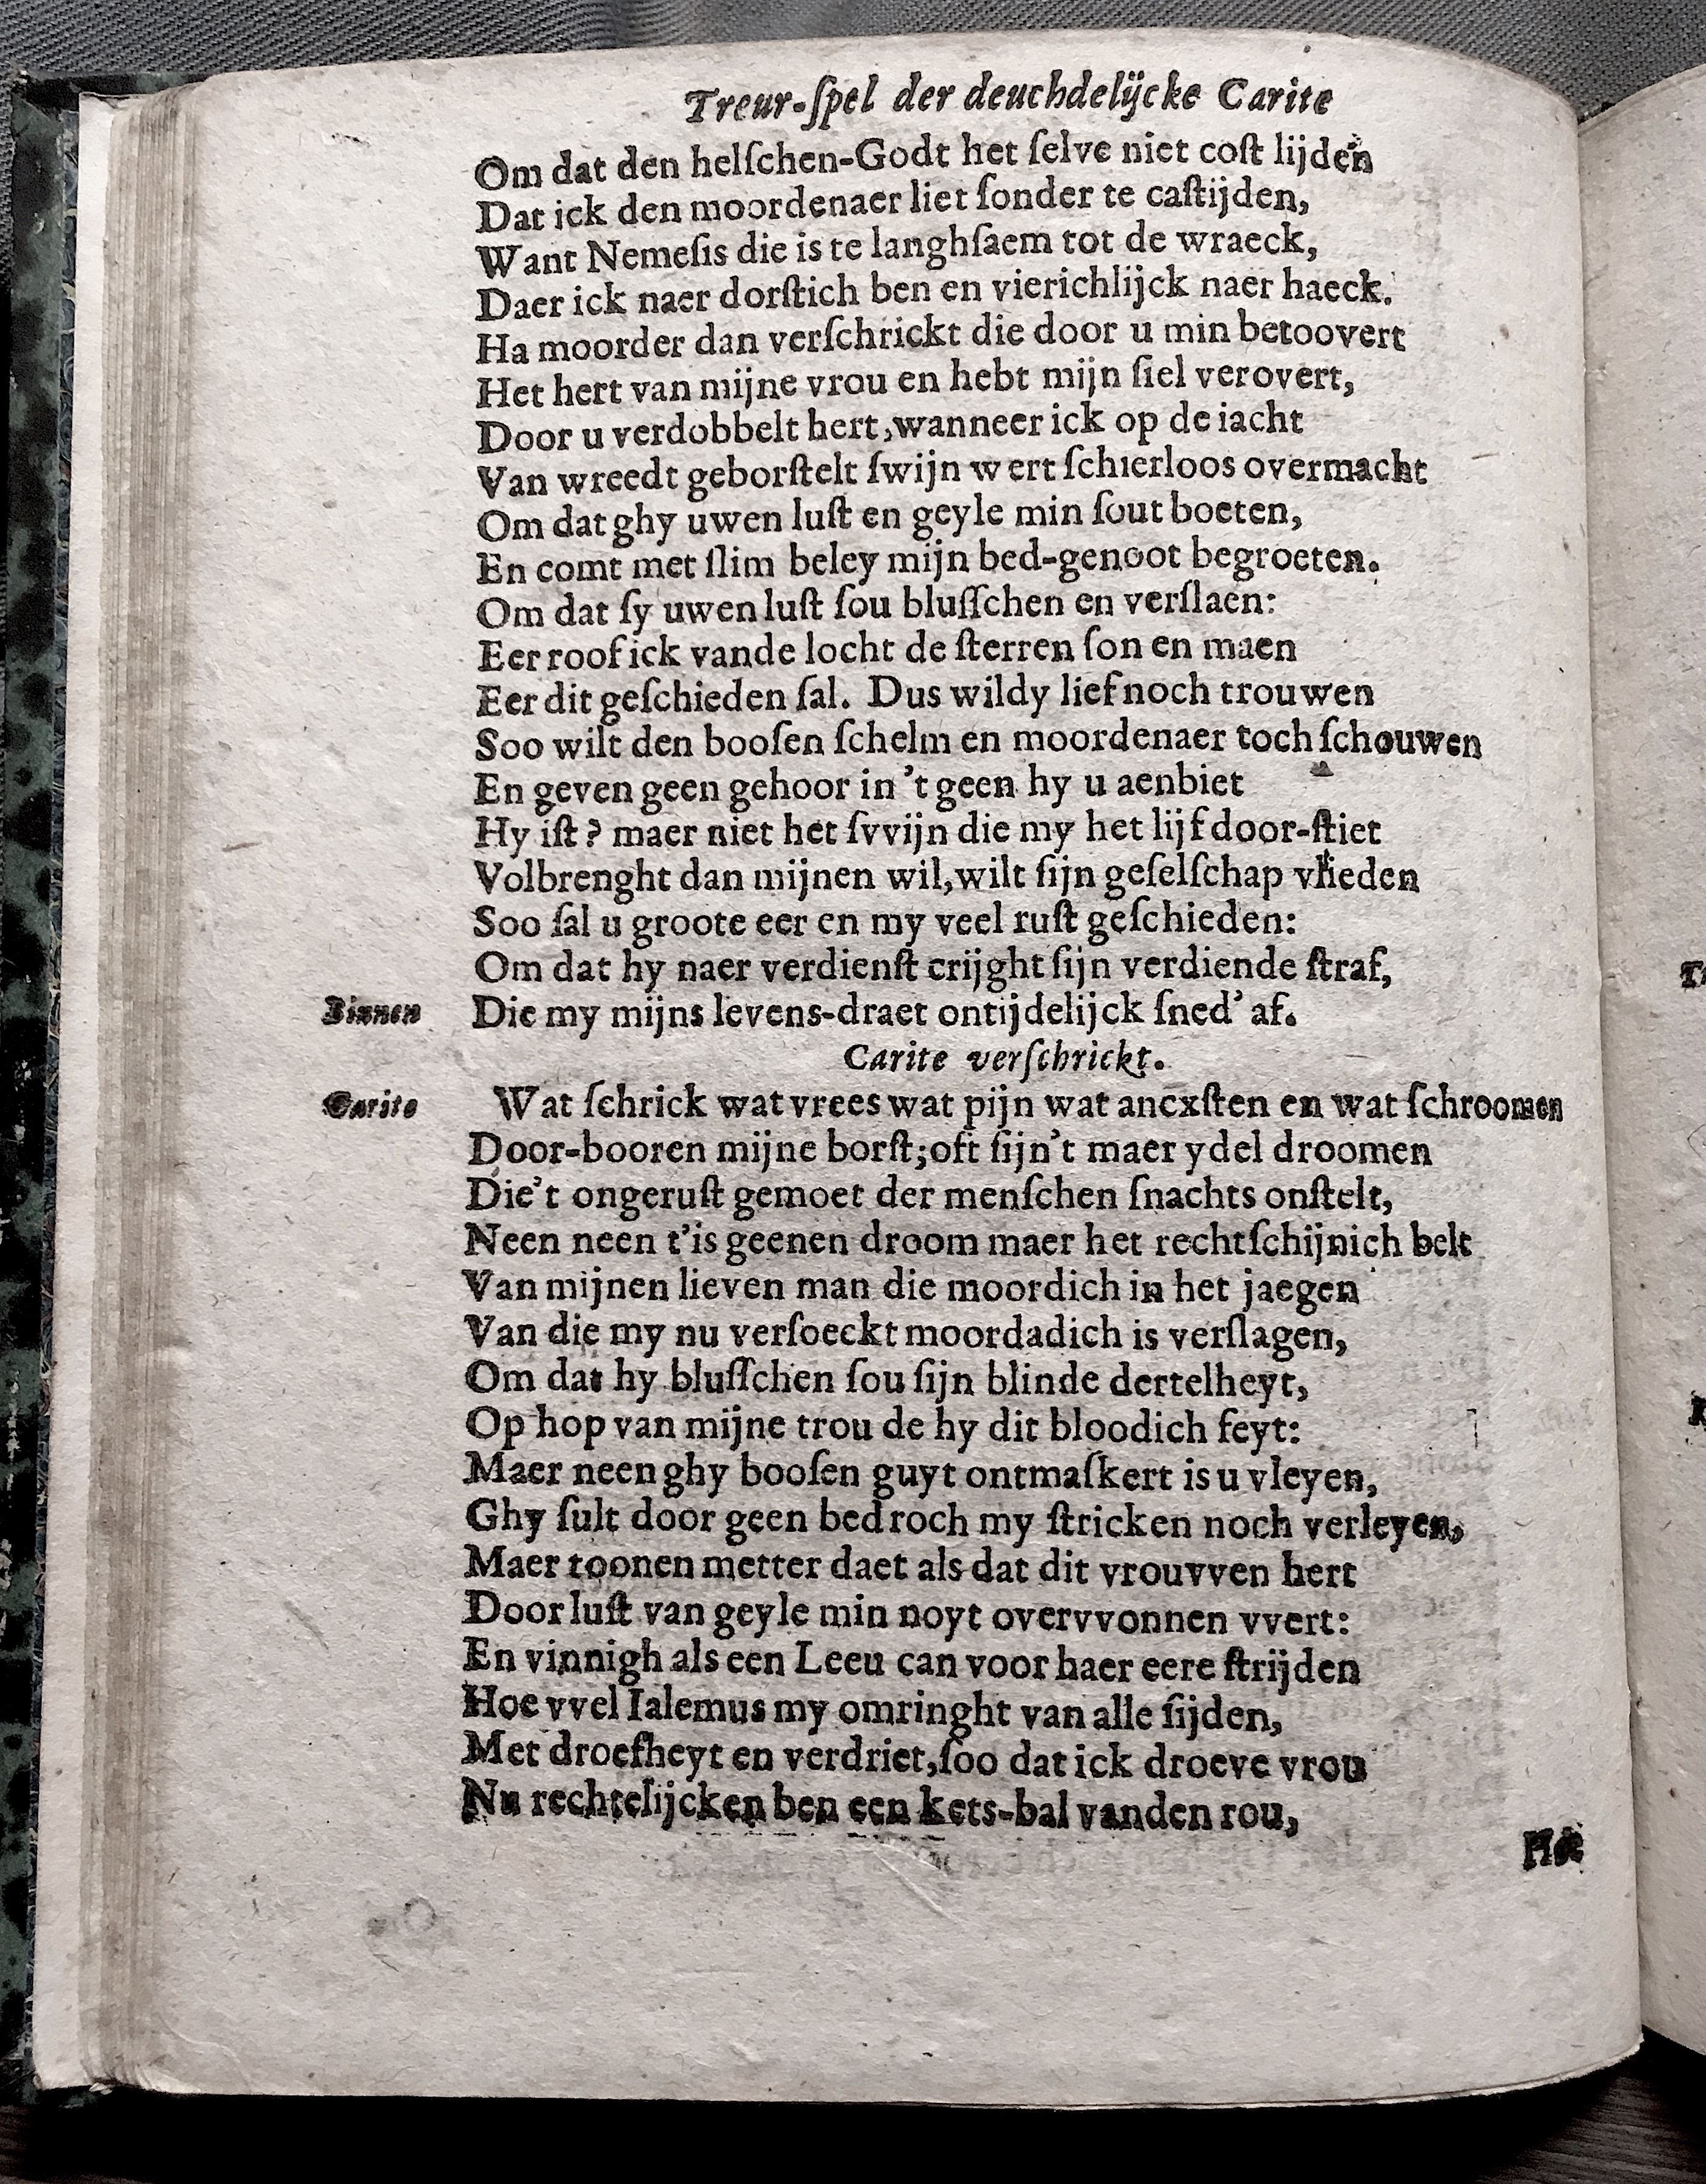 Treur-ſpel der deuchdelijcke Carite
Om dat den helſchen-Godt het ſelve niet coſt lijden
Dat ick den moordenaer liet ſonder te caſtijden,
Want Nemeſis die is te langhſaem tot de wraeck,
Daer ick naer dorſtich ben en vierichlijck naer haeck.
Ha moorder dan verſchrickt die door u min betoovert
Het hert van mijne vrou en hebt mijn ſiel verovert,
Door u verdobbelt hert, wanneer ick op de iacht
Van wreedt geborſtelt ſwijn wert ſchierloos overmacht
Om dat ghy uwen luſt en geyle min ſout boeten,
En comt met ſlim beley mijn bed-genoot begroeten.
Om dat ſy uwen luſt ſou bluſſchen en verſlaen:
Eer roof ick vande locht de ſterren ſon en maen
Eer dit geſchieden ſal. Dus wildy lief noch trouwen
Soo wilt den booſen ſchelm en moordenaer toch ſchouwen
En geven geen gehoor in 't geen hy u aenbiet
Hy iſt? maer niet het ſvvijn die my het lijf door-ſtiet
Volbrenght dan mijnen wil, wilt ſijn geſelſchap vlieden
Soo ſal u groote eer en my veel ruſt geſchieden:
Om dat hy naer verdienſt crijght ſijn verdiende ſtraf,
Binnen Die my mijns levens-draet ontijdelijck ſned' af.
Carite verſchrickt.
Carite Wat ſchrick wat vrees wat pijn wat ancxſten en wat ſchroomen
Door-booren mijne borſt; oft ſijn't maer ydel droomen
Die't ongeruſt gemoet der menſchen ſnachts onſtelt,
Neen neen t'is geenen droom maer het rechtſchijnich belt
Van mijnen lieven man die moordich in het jaegen
Van die my nu verſoeckt moordadich is verſlagen,
Om dat hy bluſſchen ſou ſijn blinde dertelheyt,
Op hop van mijne trou de hy dit bloodich feyt:
Maer neen ghy booſen guyt ontmaſkert is u vleyen,
Ghy ſult door geen bedroch my ſtricken noch verleyen,
Maer toonen metter daet als dat dit vrouvven hert
Door luſt van geyle min noyt overvvonnen vvert:
En vinnigh als een Leeu can voor haer eere ſtrijden
Hoe vvel Ialemus my omringht van alle ſijden,
Met droefheyt en verdriet, ſoo dat ick droeve vrou
Nu rechtelijcken ben een kets-bal vanden rou,
Hoe